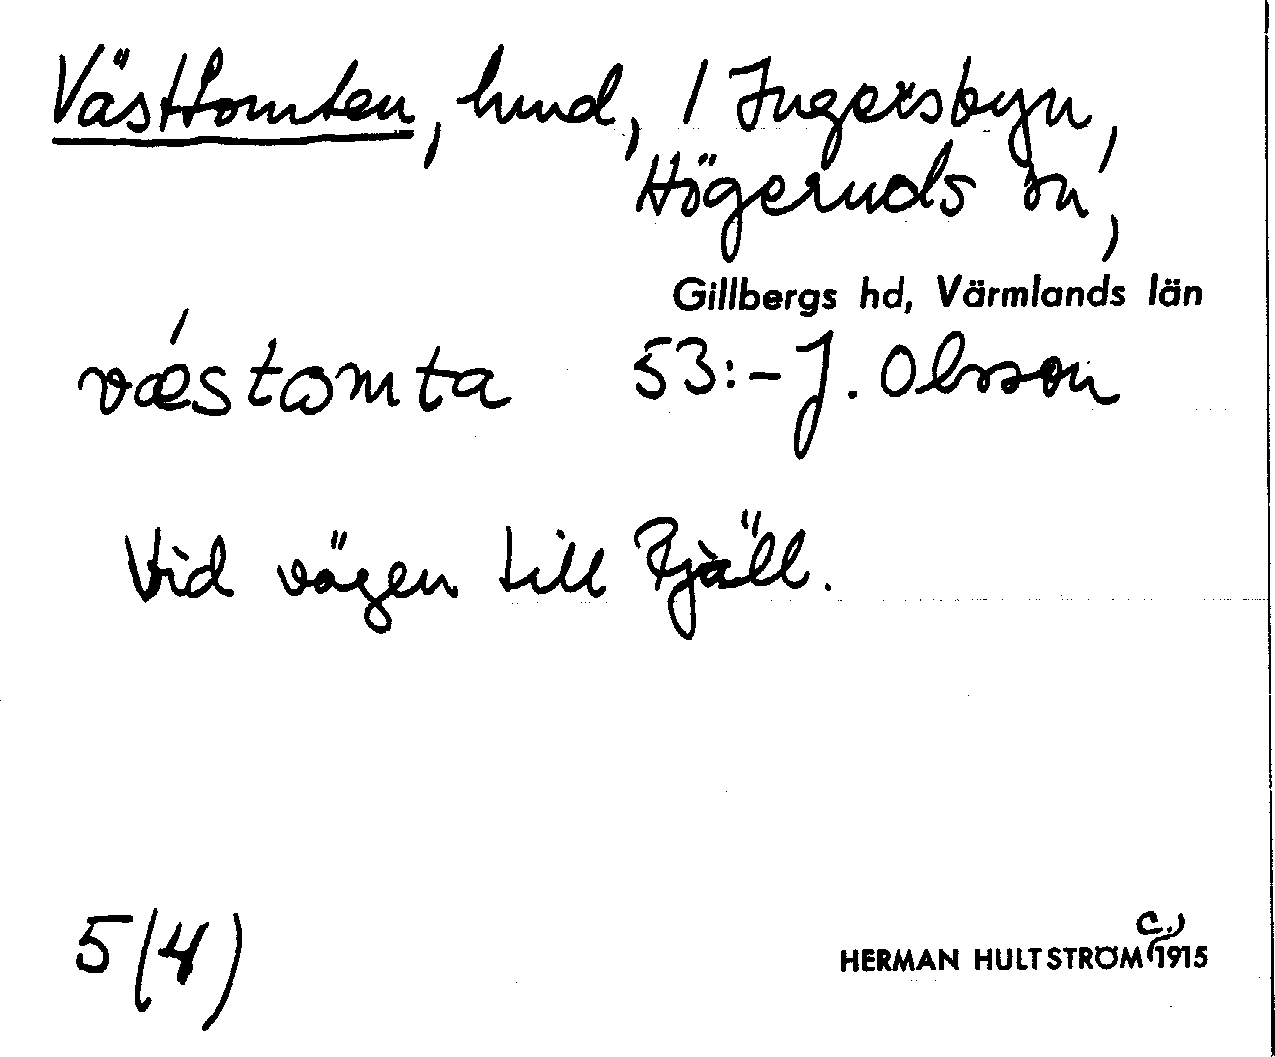 Västtomten, hmd, / Ingersbyn,
Högeruds sn,
Gillbergs hd, Värmlands län
vǽstomta 53:- J. Olsson
Vid vägen till Fjäll.
5 (4)
HERMAN HULTSTRÖM (c.) 1915